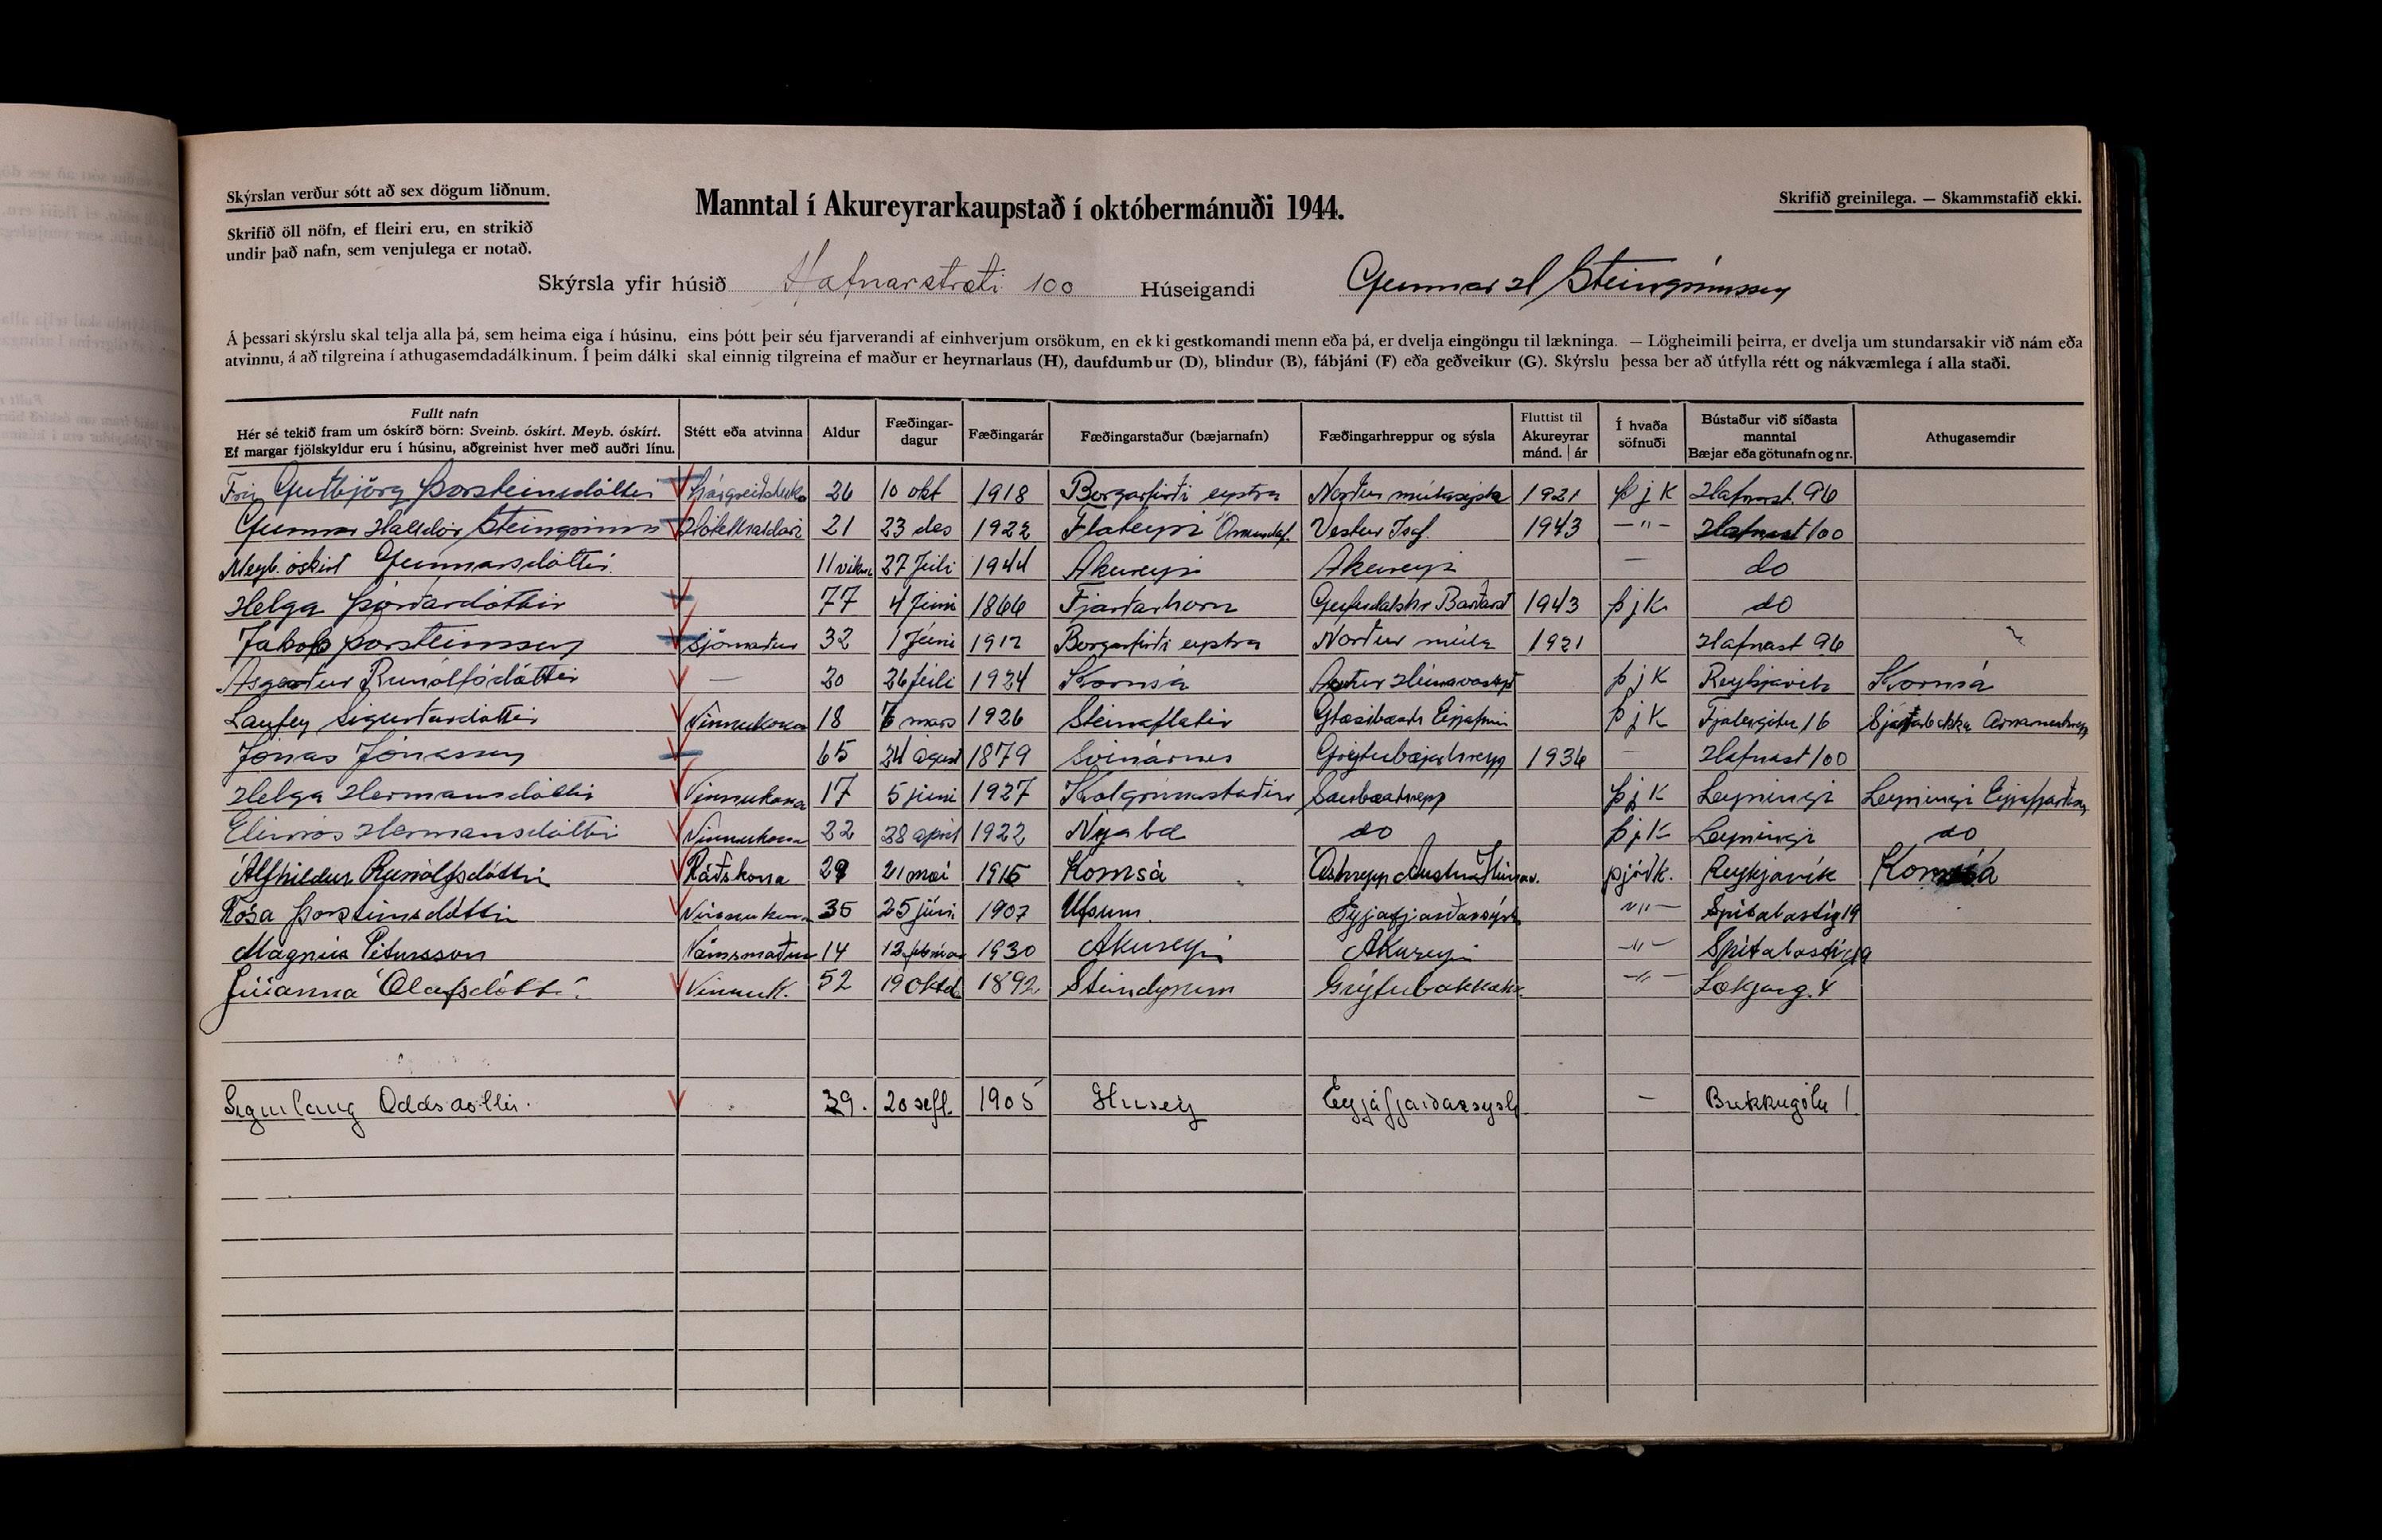 Skýrslan verður sótt að sex dögum liðnum.
Skrifið öll nöfn, ef fleiri eru, en strikið
undir það nafn, sem venjulega er notað.
Manntal í Akureyrarkaupstað í októbermánuði 1944.
Skrifið greinilega. — Skammstafið ekki.
Skýrsla yfir húsið Hafnarstræti 100 Húseigandi Gunnar H Steingrímsson
Á þessari skýrslu skal telja alla þá, sem heima eiga í húsinu, eins þótt þeir séu fjarverandi af einhverjum orsökum, en ekki gestkomandi menn eða þá, er dvelja eingöngu til lækninga. — Lögheimili þeirra, er dvelja um stundarsakir við nám eða
atvinnu, á að tilgreina í athugasemdadálkinum. Í þeim dálki skal einnig tilgreina ef maður er heyrnarlaus (H), daufdumbur (D), blindur (B), fábjáni (F) eða geðveikur (G). Skýrslu þessa ber að útfylla rétt og nákvæmlega í alla staði.
Fullt nafn
Hér sé tekið fram um óskírð börn: Sveinb. óskírt. Meyb. óskírt.
Ef margar fjölskyldur eru í húsinu, aðgreinist hver með auðri línu.
Stétt eða atvinna
Aldur
Fæðingar-
dagur
Fæðingarár
Fæðingarstaður (bæjarnafn)
Fæðingarhreppur og sýsla
Fluttist til
Akureyrar
mánd. ár
Í hvaða
söfnuði
Bústaður við síðasta
manntal
Bæjar eða götunafn og nr.
Athugasemdir
Guðbjörg Þorsteinsdóttir 26 10 okt 1918 Borgarfirði eystra Norður múlasýsla 1921 þ j k Hafnarst. 96
Gunnar Halldór Steingrímss Hótelhaldari 21 23 des 1922 Flateyri Önundaf. Vestur Isaf. 1943 —"— Hafnast 100
Meyb. óskírt Gunnarsdóttir 11 vikna 27 Júlí 1944 Akureyri Akureyri — do
Helga Þórðardóttir 77 4 Júní 1866 Fjarðarhorn Gufudalshr Barðast 1943 þ j k do
Jakob Þorsteinsson Sjómaður 32 1 Júní 1912 Borgarfirði eystra Norður múla 1921 Hafnast 96
Ásgerður Runólfsdóttir — 20 26 júlí 1924 Kornsá þ j k Reykjavík Kornsá
Laufey Sigurðardóttir Vinnukona 18 6 mars 1926 Steinaflatir þ j k 16
Jónas Jónasson 65 24 ágúst 1879 Svínárnes 1936 — Hafnast 100
Helga Hermansdóttir Vinnukona 17 5 júní 1927 Kolgrímastaðir Saurbæahrepp þ j k Leyningi Leyningi Eyjafjarðars
Elinrós Hermansdóttir Vinnukona 22 28 apríl 1922 Nýabæ do þ j k Leyningi do
Álfhildur Runólfsdóttir Ráðskona 29 21 maí 1915 Kornsá Áshrepp Austur Húnav. þjóðk. Reykjavík Kornsá
Rósa Þorsteinsdóttir Vinnukona 35 25 júní 1907 Ufsum Eyjafjarðarsýsla —"— Spítalastíg 19
Magnús Pétursson Námsmaður 14 12 febrúar 1930 Akureyri Akureyri —"— Spítalastíg 19
Júíanna Ólafsdóttir Vinnuk. 52 19 októ 1892 Steindyrum Grýtubakkahr. —"— Lækjarg. 4
Sigurlaug Oddsdóttir. 39. 20 sept. 1905 Húsey Eyjafjarðarsysl — Brekkugötu 1